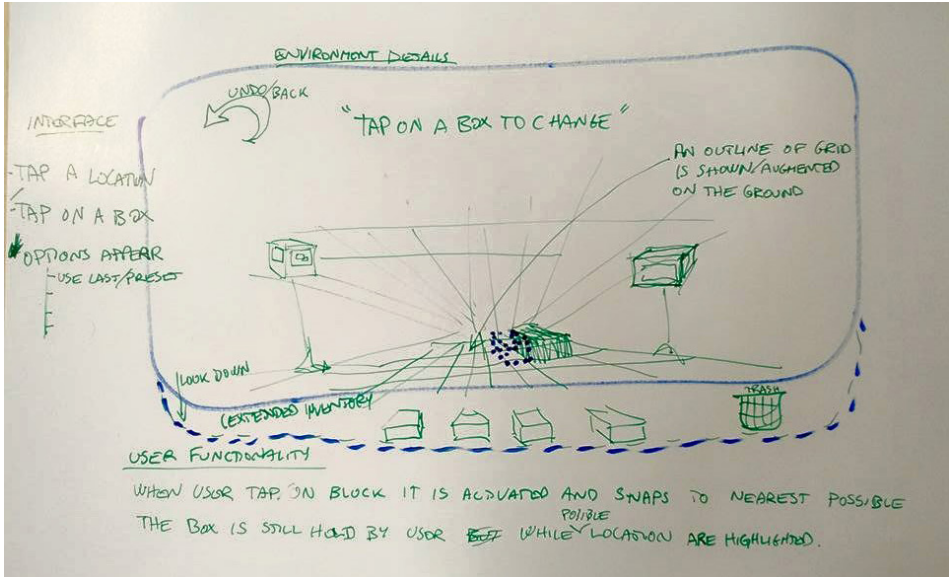 ENVIRONMENT DETAILS
UNDO/BACK
"TAP ON A BOX TO CHANGE"
INTERFACE
-TAP A LOCATION
-TAP ON A BOX
OPTIONS APPEAR
-USE LAST/PRESET
AN OUTLINE OF GRID
IS SHOWN/AUGMENTED
ON THE GROUND
LOOK DOWN
(EXTENDED INVENTORY
TRASH
USER FUNCTIONALITY
WHEN USER TAP ON BLOCK IT IS ACTIVATED AND SNAPS TO NEAREST POSSIBLE
THE BOX IS STILL HOLD BY USER WHILE POSIBLE LOCATION ARE HIGHLIGHTED.